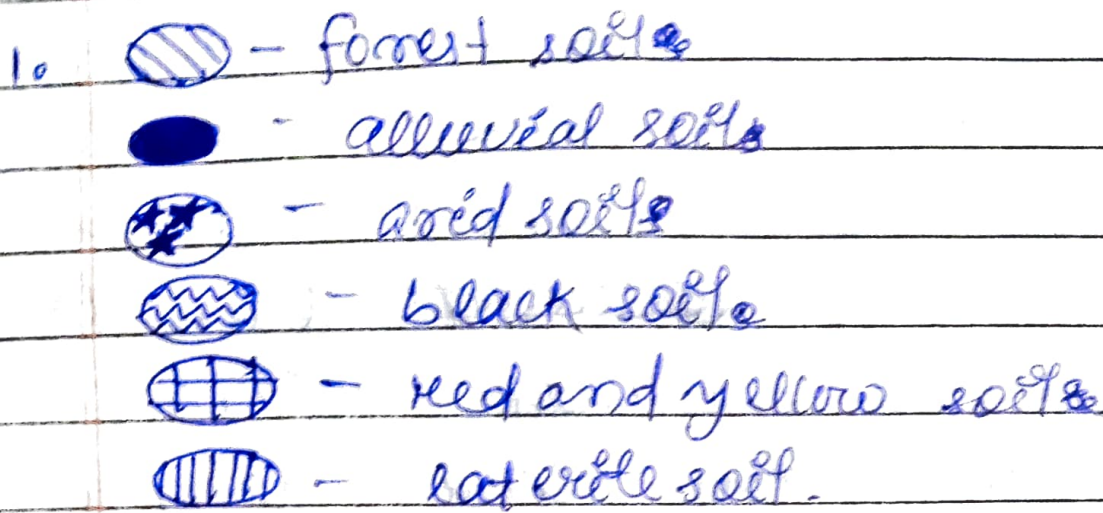 1. - forest soils
- alluvial soils
- arid soils
- black soils
- red and yellow soils
- laterite soil.